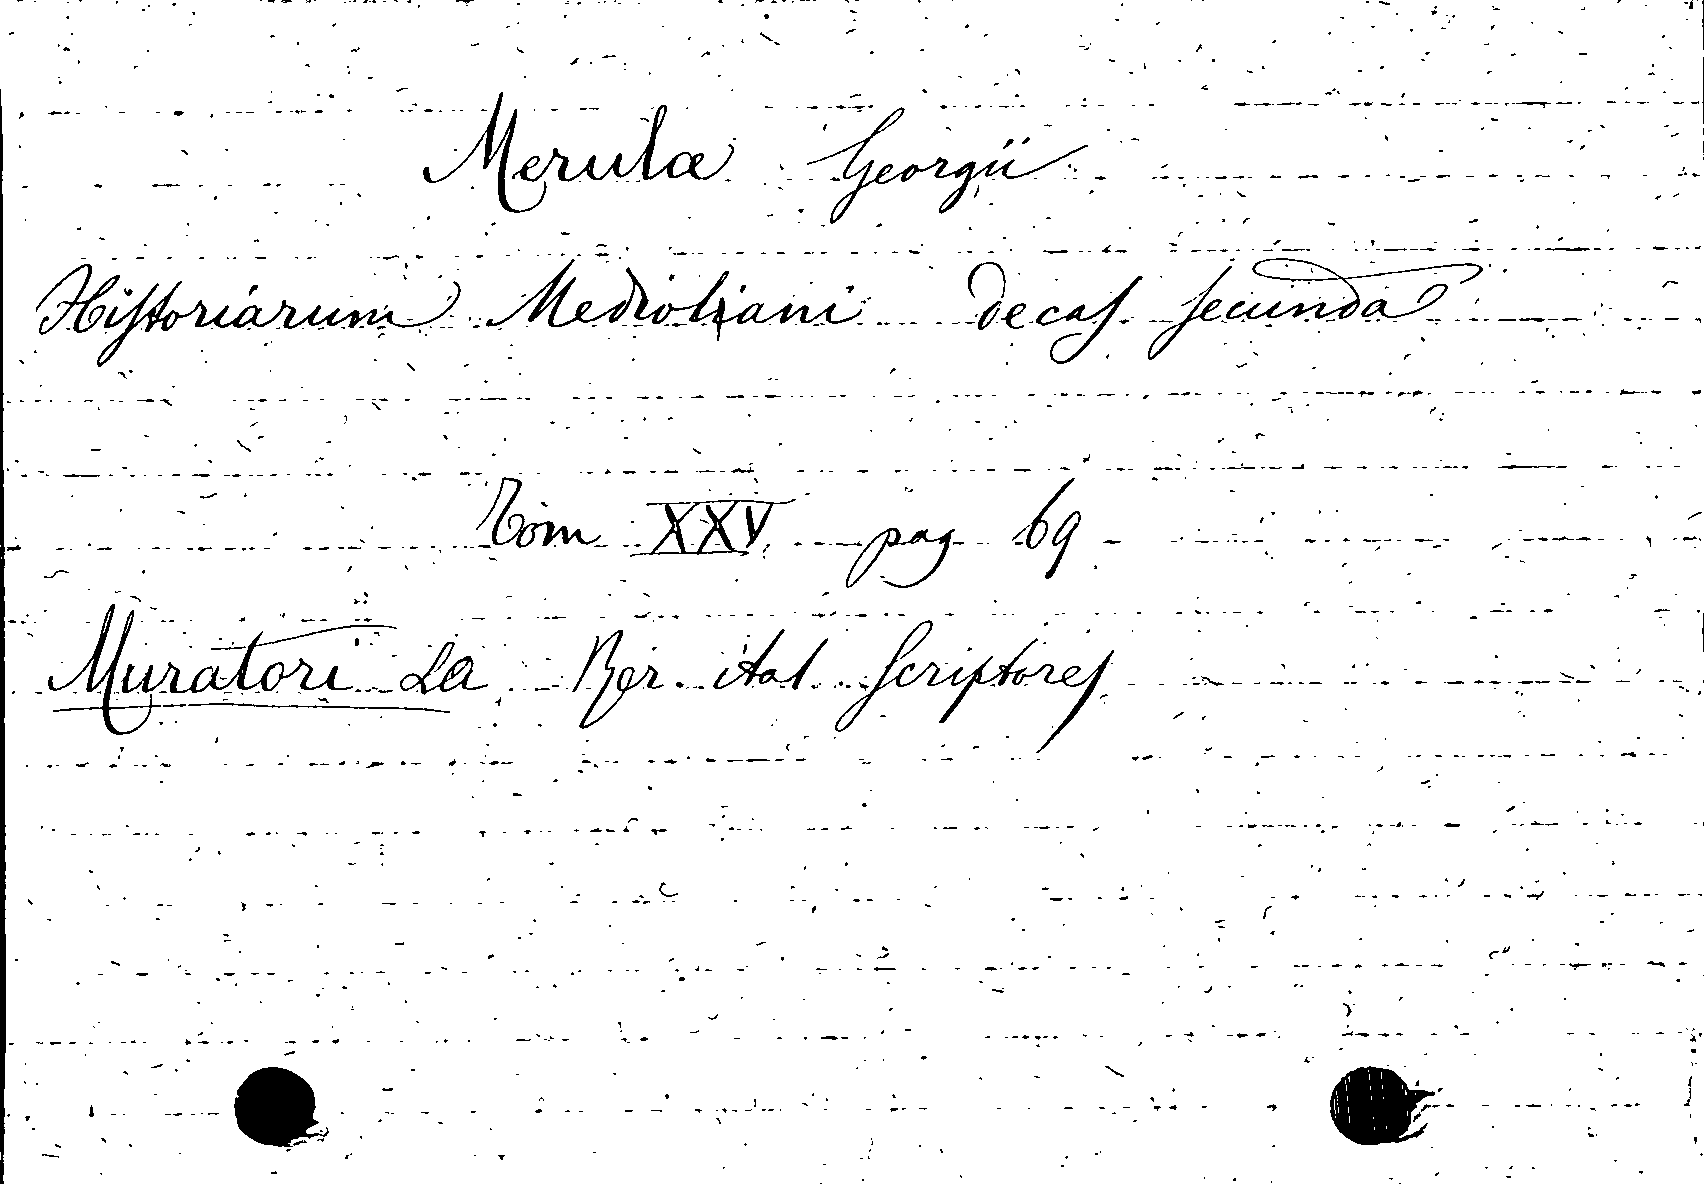 Merulæ Georgii
Hiſtoriarum Medioliani decaſ ſecunda
Tom XXV pag 69
Muratori LA Rer. ital Scriptoreſ